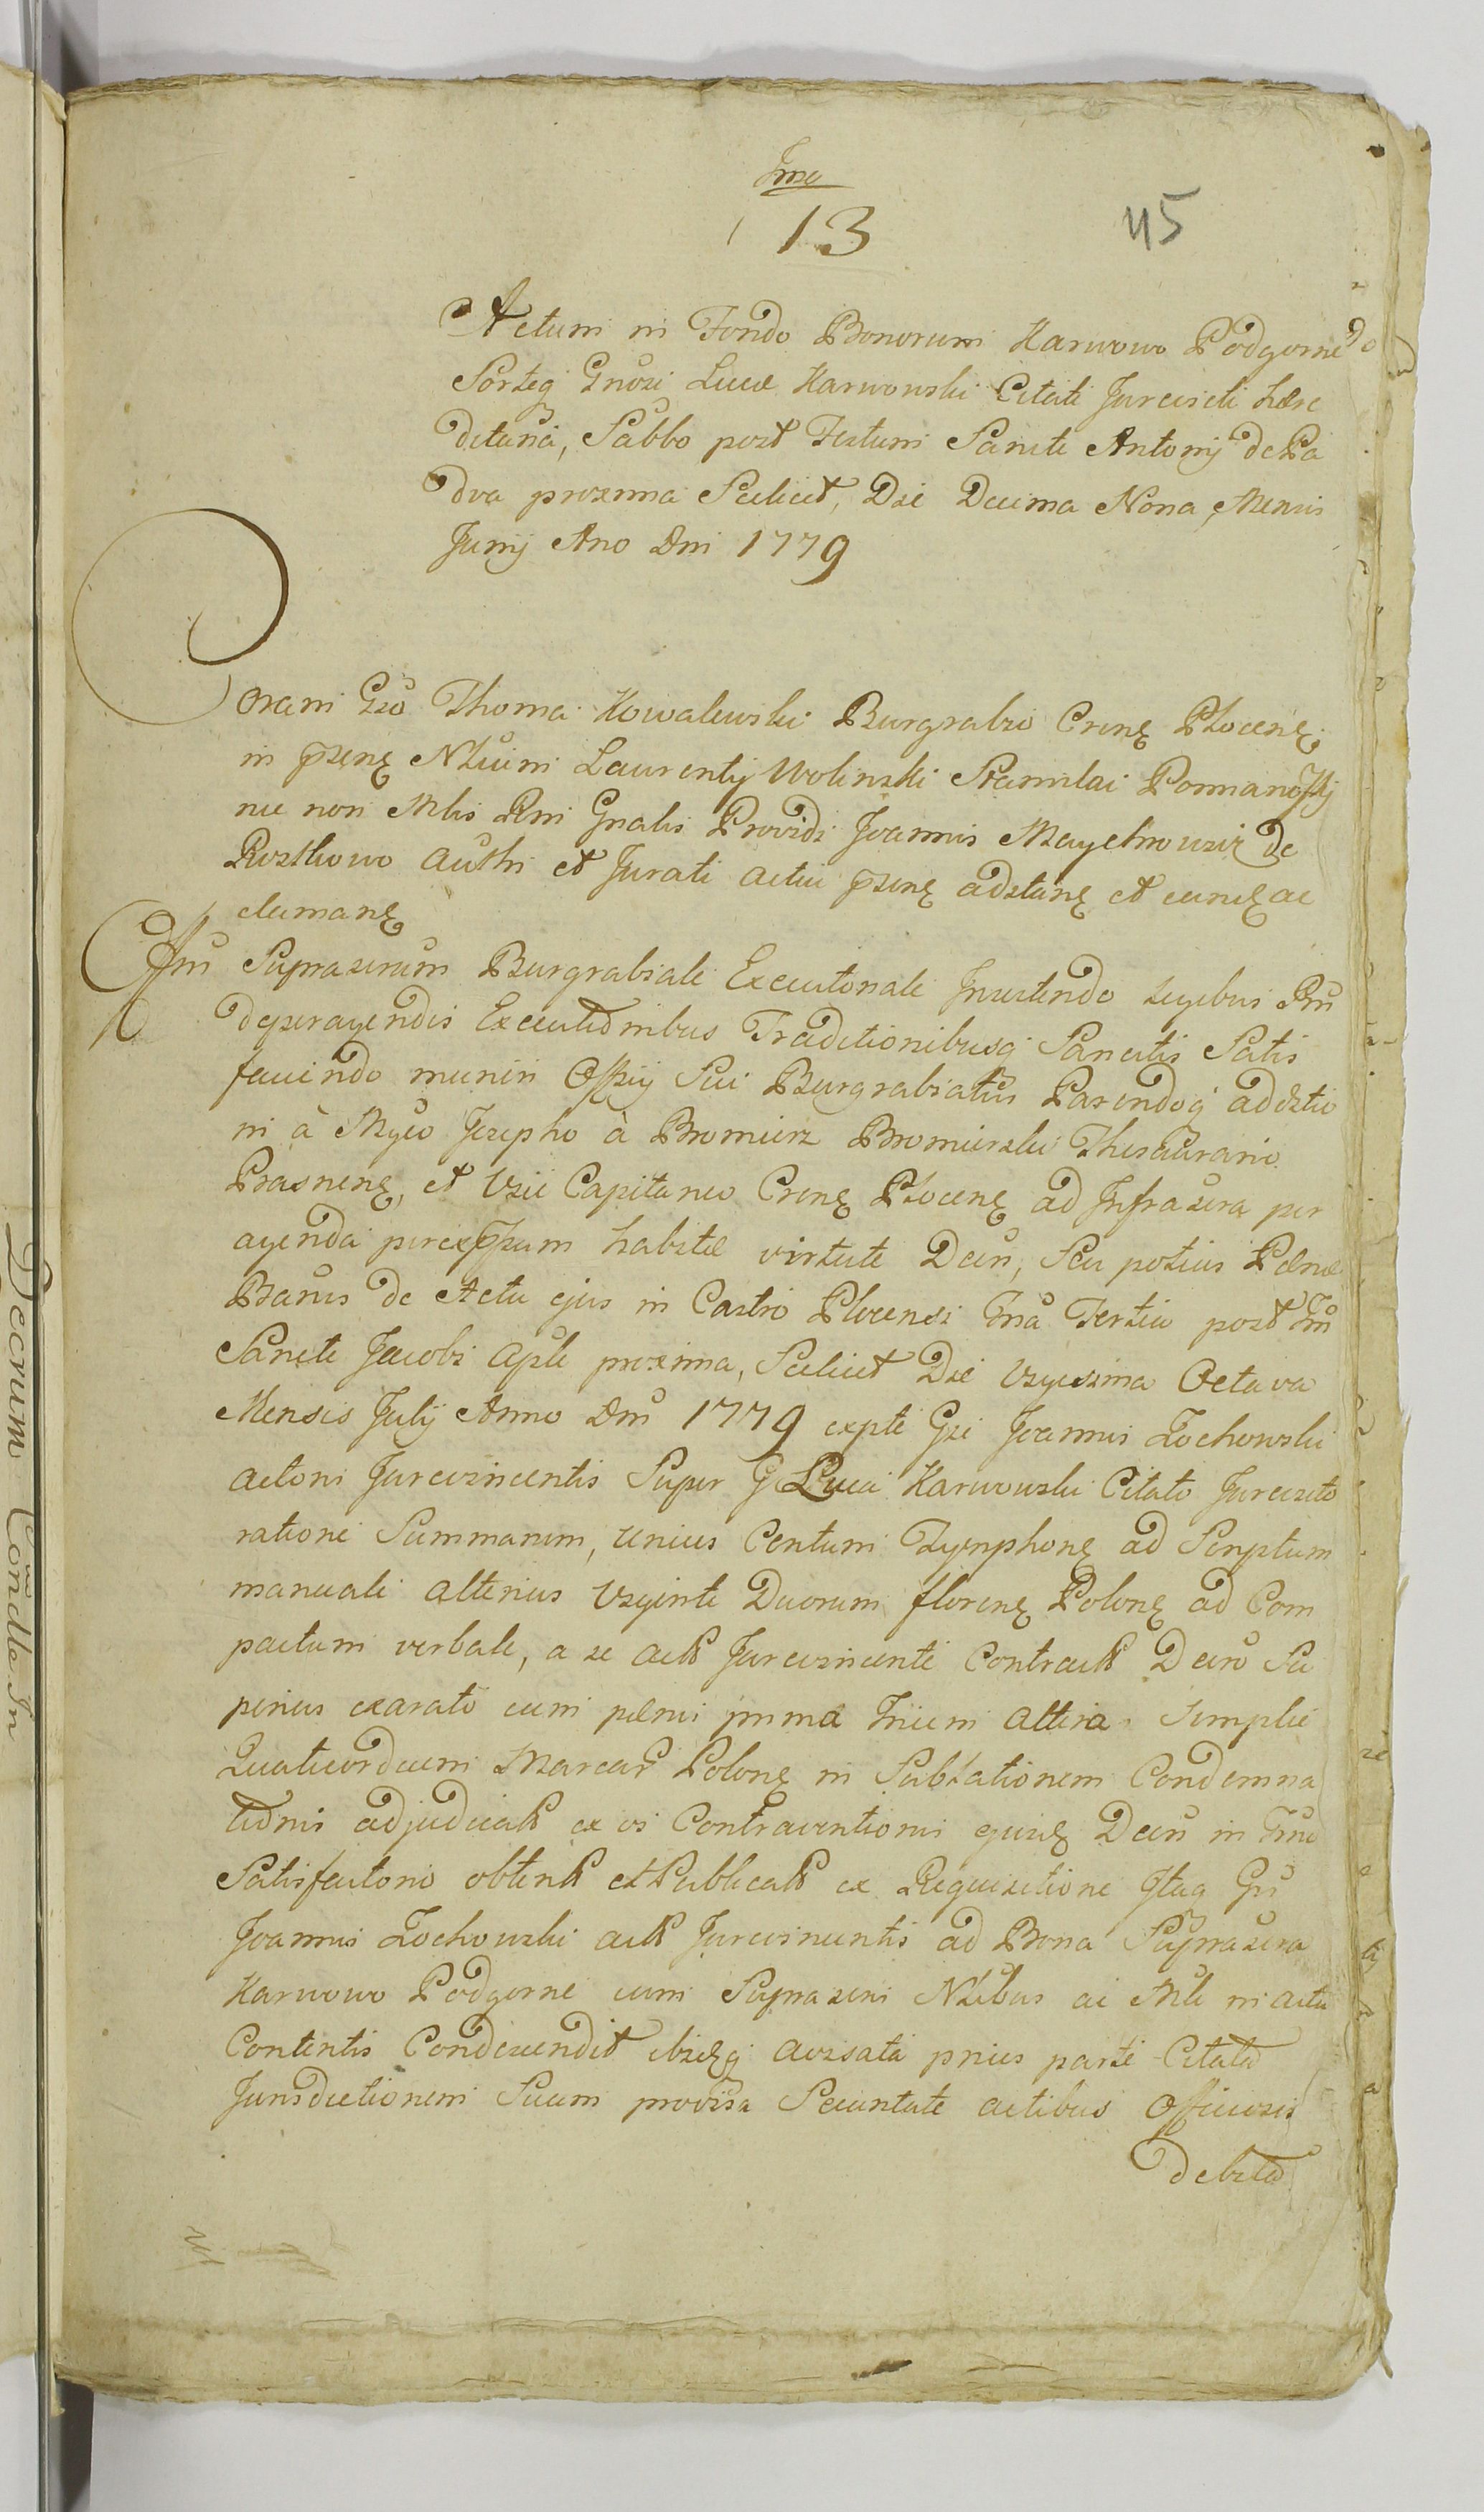 13
45
Actum in Fondo Bonorum Karwowo Podgorne
Sorteq Gnosi Lucæ Karwowski Citati Jurevicti hære
ditaria, Sabbo post Festum Sancti Antonij de Pa
dva proxima Scilicet, Die Decima Nona Mensis
Junij Ano Dni 1779
Coram Gso Thoma Kowalewski Burgrabio Crenę Płocenę
in pseñę Nbium Laurentij Wolinski Stanislai Poman
nec non Mlis Rni Gnalis Providi Joannis Maychrowicz de
Rostkowo Authi et Jurati actui psenę adstanę et eundę ac
clamanę
Offm Suprascrum Burgrabiale Executoriale Insistendo legibus Rni
de peragendis Executionibus Traditionibusq Sancitis Satis
faciendo muniri Offij Sui Burgrabiatus Parendoq
ni à Mgco Josepho à Bromierz Bromierski Thesaurario
Prasnenę, et Vice Capitaneo Crenę Płocenę ad Infrascra per
agenda habitæ virtute Decri, Seu potius Pænæ
Banis de Actu ejus in Castro Plocensi Fria Tertia post Fm
Sancti Jacobi Apli proxima, Scilicet Die Vigesima Octava
Mensis Julij Anno Dni 1779 expte Gsi Joannis Zochowski
actoris Jurevincentis Super G Luca Karwowski Citato Jurevicto
ratione Summarum, unius Centum Tymphonę ad Scriptum
manuale alterius Viginti Duorum florenę Polonę ad Com
pactum verbale, a se acto Jurevincente Contract Decro Su
perius exarato cum pænis prima Trium altera Simplic
Quatuordecim Marcar Polonę in Sublationem Condemna
tionis adjudicat ex vi Contraventionis ejusdę Decri in Trno
Satisfactorio obtent et Publicat ex Requisitione Itaq Gsi
Joannis Zochowski act Jurevincentis ad Bona Suprascra
Karwowo Podgorne cum Suprascris Nbibus ac Mli in actu
Contentis Condescendit ibidęq avisata prius parte Citata
Jurisdictionem Suam provisa Securitate actibus Officiosis
debita
Decrum Condle In